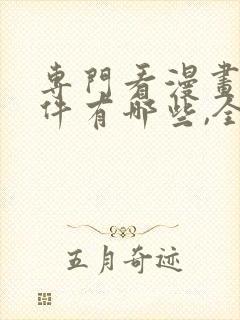 專門看漫畫
件有哪些,全
五月奇迹